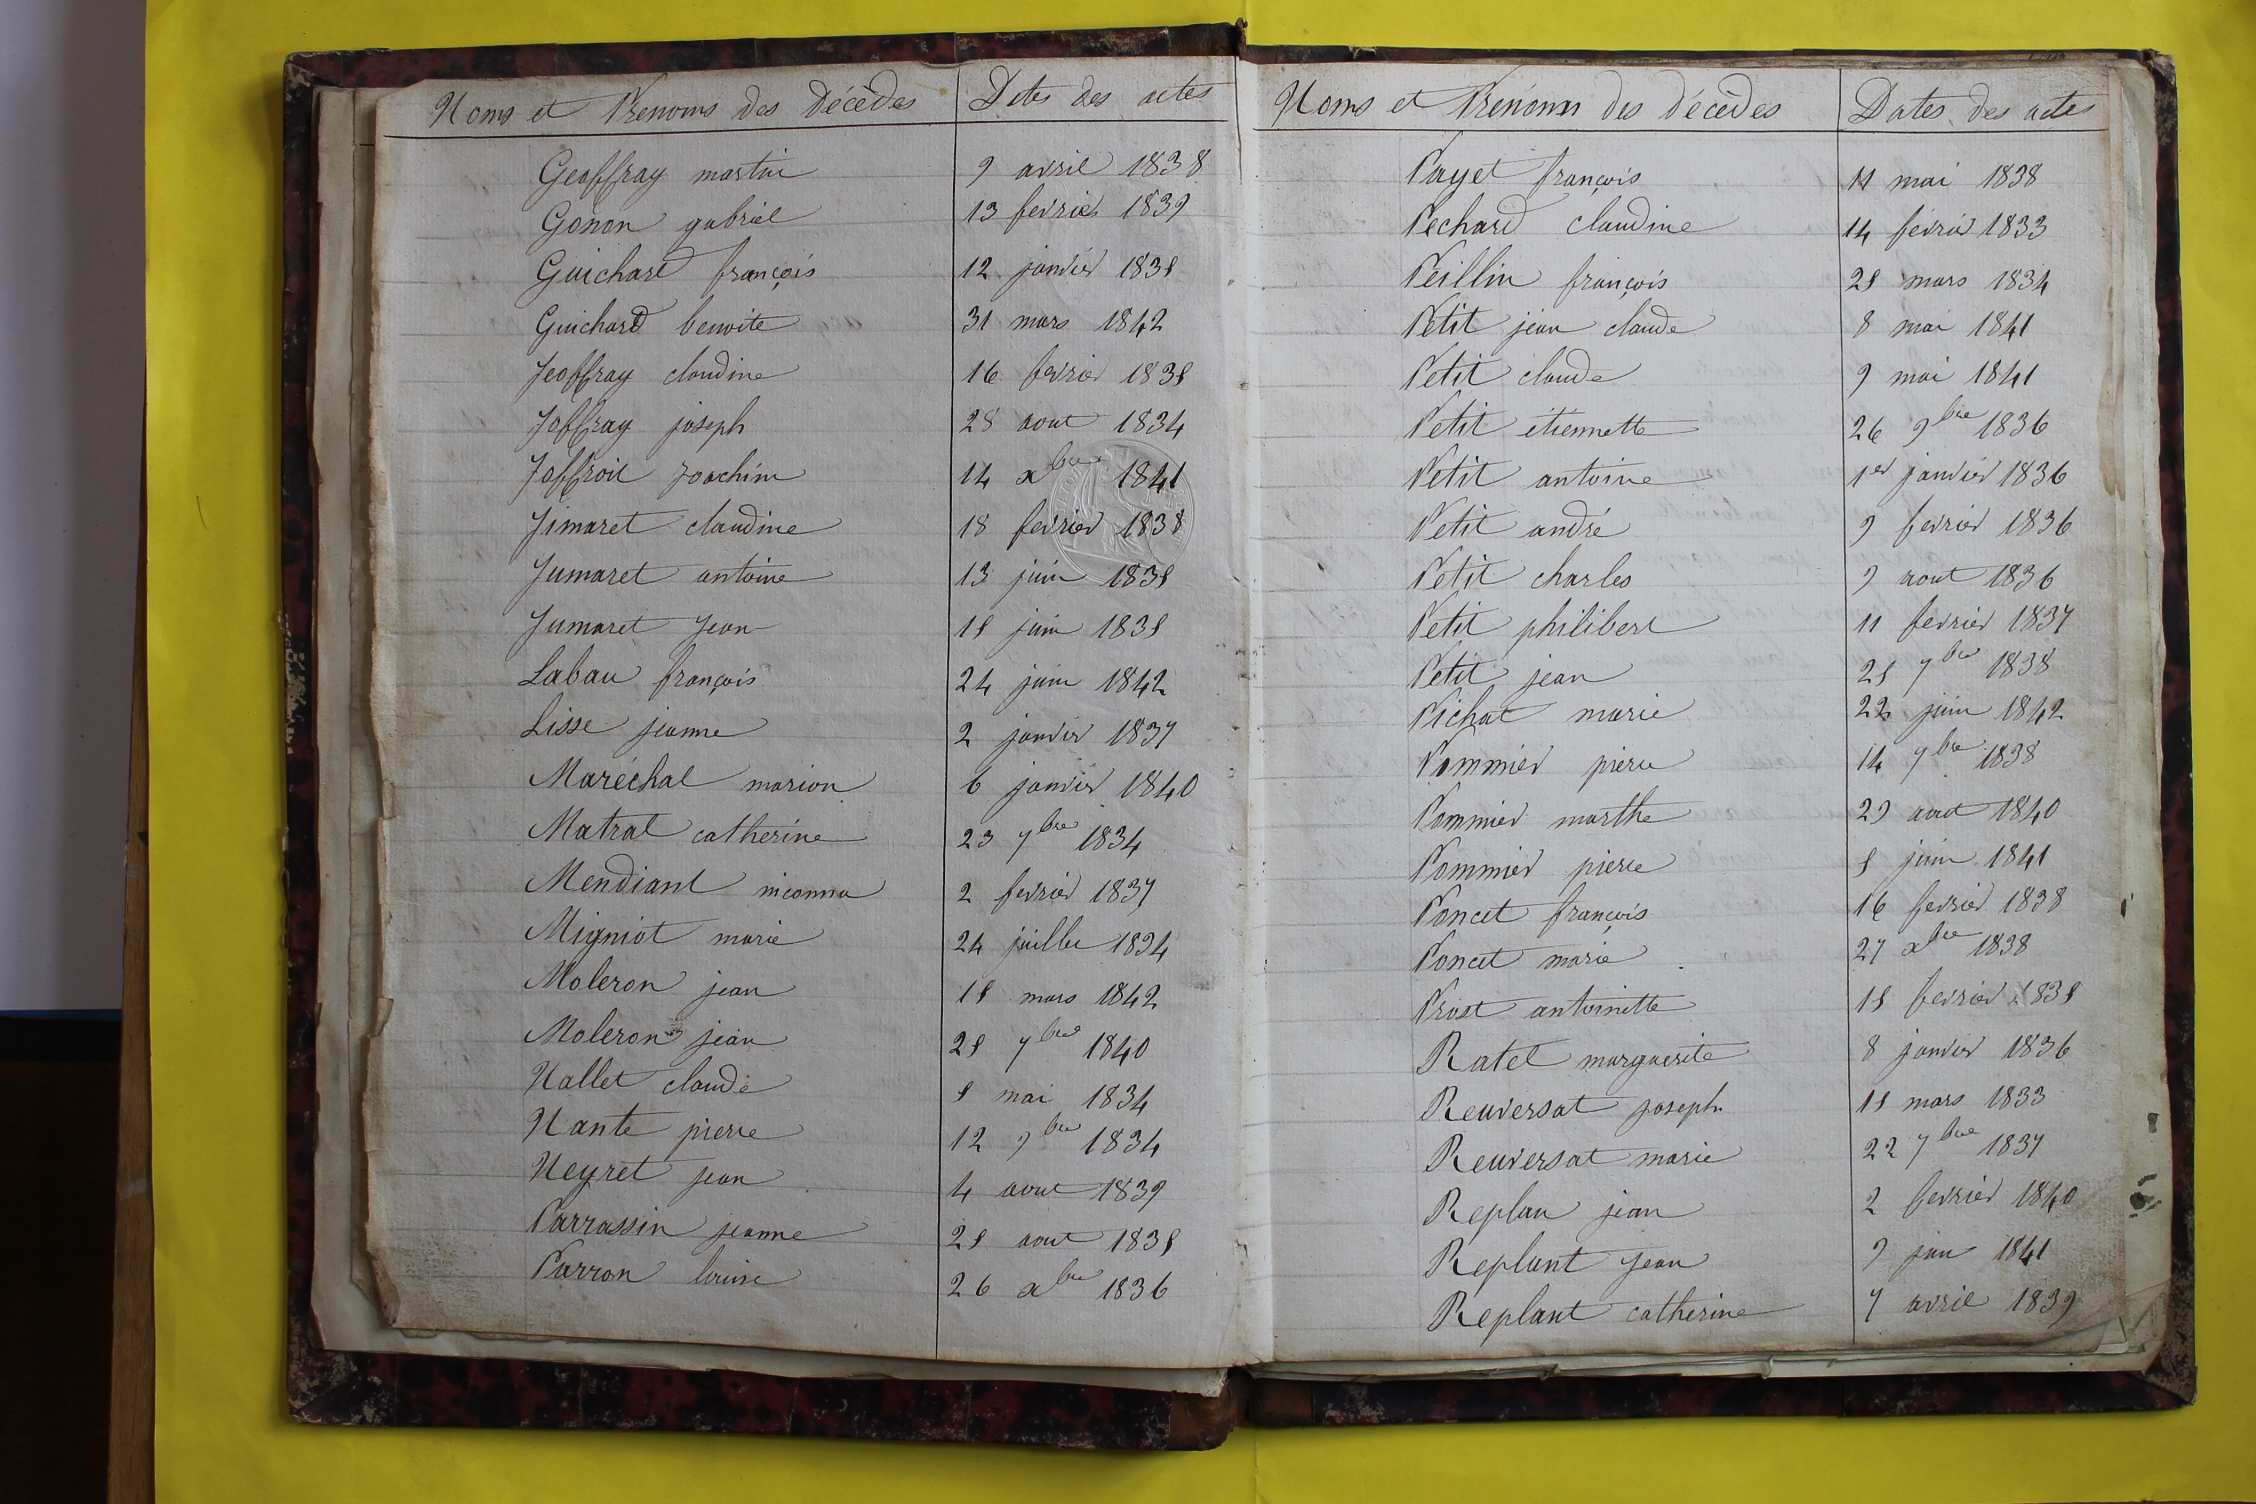 Noms et Prenoms des Décèdes
Dates des actes
Geoffray martin 9 avril 1838
Gonon gabriel 13 fevrier 1839
Guichard françois 12 janvier 1835
Guichard benoite 31 mars 1842
Jeoffray claudine 16 fevrier 1835
Joffray joseph 28 aout 1834
Joffroit joachim 14 xbre 1841
Jimaret claudine 18 fevrier 1838
Jumaret antoine 13 juin 1835
Jumaret Jean 15 juin 1835
Labau françois 24 juin 1842
Lisse jeanne 2 janvier 1837
Maréchal marion 6 janvier 1840
Matrat catherine 23 7bre 1834
Mendiant inconnu 2 fevrier 1837
Migniot marie 24 juillet 1834
Moleron jean 15 mars 1842
Moleron jean 25 7bre 1840
Nallet claude 5 mai 1834
Nante pierre 12 9bre 1834
Neyret jean 4 aout 1839
Parrassin jeanne 25 aout 1835
Parron louise 26 xbre 1836
Noms et Prenoms des décèdes
Dates des actes
Payet françois 11 mai 1838
Pechard claudine 14 fevrier 1833
Peillin françois 25 mars 1834
Petit jean claude 8 mai 1841
Petit claude 9 mai 1841
Petit etiennette 26 9bre 1836
Petit antoine 1er janvier 1836
Petit andré 9 fevrier 1836
Petit charles 9 aout 1836
Petit philibert 11 fevrier 1837
Petit jean 25 7bre 1838
Pichat marie 22 juin 1842
Pommier pierre 14 7bre 1838
Pommier marthe 29 aout 1840
Pommier pierre 5 juin 1841
Poncet françois 16 fevrier 1838
Poncet marie 27 xbre 1838
Prost antoinette 15 fevrier 1835
Ratel marguerite 8 janvier 1836
Reuversat joseph 15 mars 1833
Reuversat marie 22 7bre 1837
Replan jean 2 fevrier 1840
Replant Jean 9 jan 1841
Replant catherine 7 avril 1839